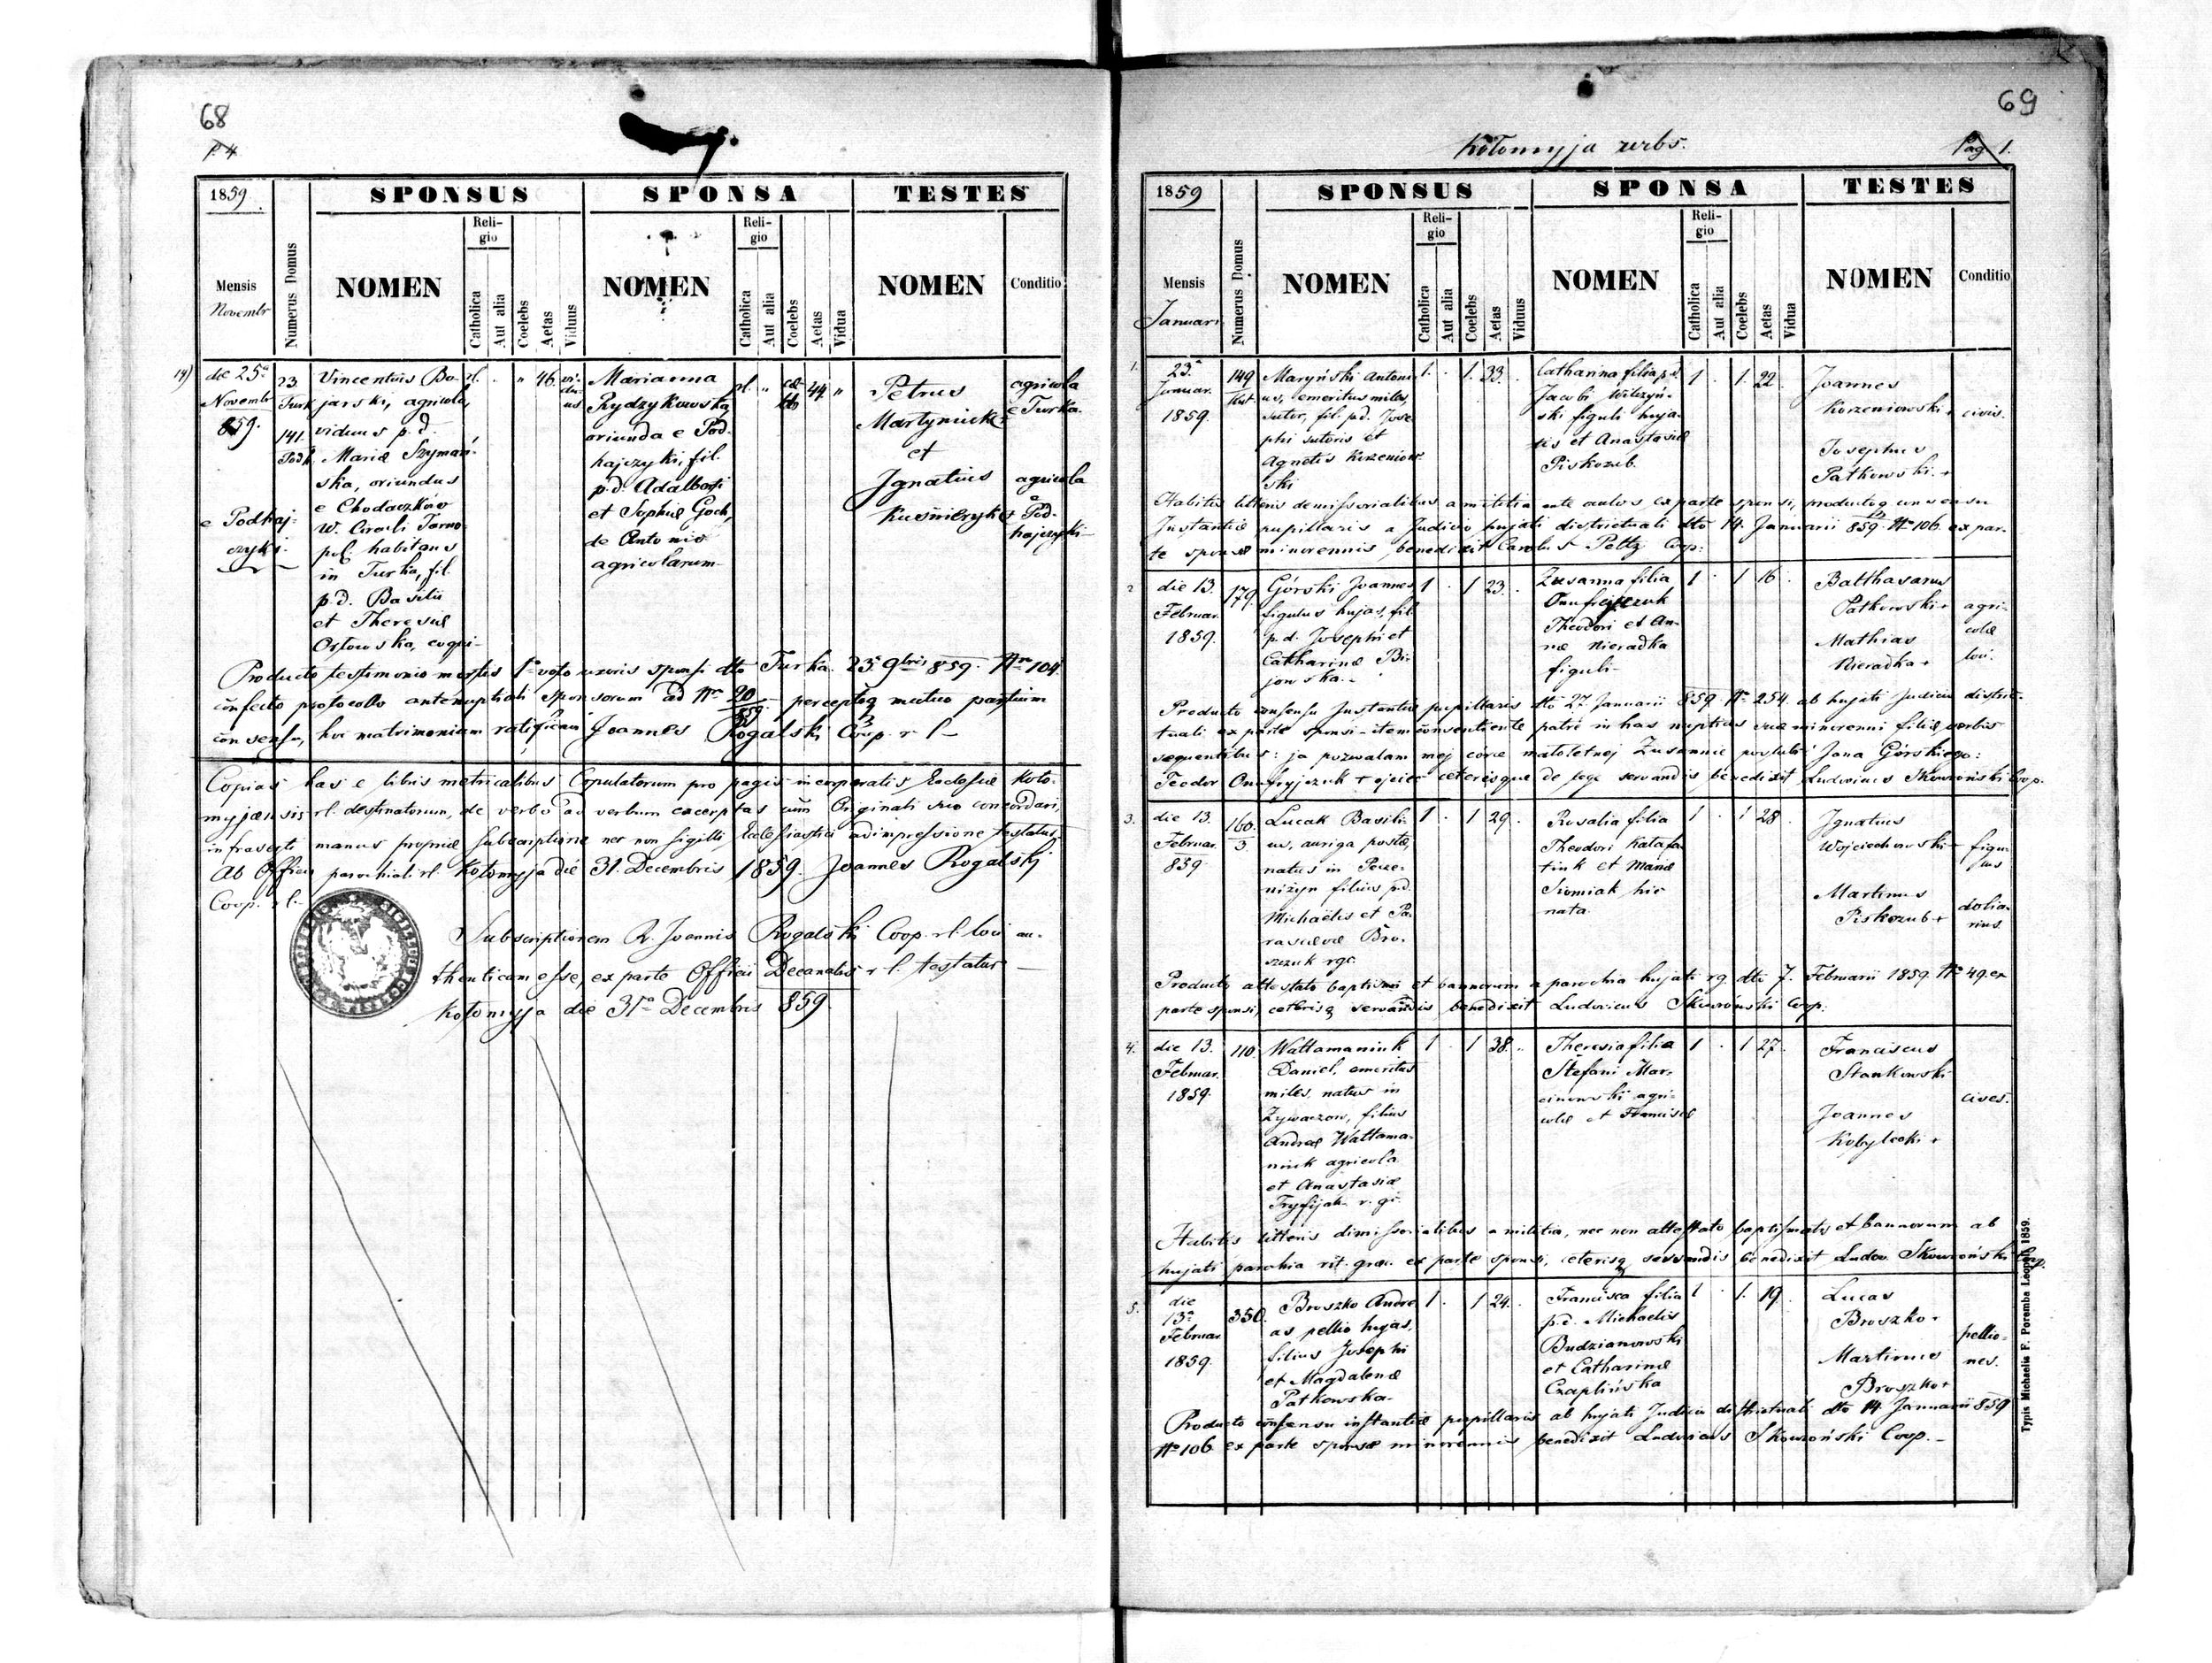 68
p. 4
1859.
SPONSUS
SPONSA
TESTES
Mensis
Novembr
Numerus Domus
NOMEN
Reli-
gio
Catholica
Aut alia
Coelebs
Aetas
Viduus
NOMEN
Reli-
gio
Catholica
Aut alia
Coelebs
Aetas
Vidua
NOMEN
Conditio
14)
die 25ª
Novembr
859.
e Podhaj-
czyki.
23.
Turk
141.
Podh.
Vincentius Bo-
jarski, agricola,
viduus p.d.
Mariæ Szymań-
ska, oriundus
e Chodaczków
W. Circuli Tarno-
pol. habitans
in Turka, fil.
p.d. Basilii
et Theresiæ
Ostowska, cogni-
rl.
46.
vi-
du-
us
Marianna
Rydzykowska,
oriunda e Pod-
hajczyki, fil.
p.d. Adalberti
et Sophiæ Goch,
de Antonio
agricolarum
rl.
44
Petrus
Martyniuk +
et
Ignatius
Kuśnieryk +
agricola
e Turka.
agricola
e Pod-
hajczyki
Producto testimonio mortis 1º voto uxoris sponsi dto Turka 23ª 9bris 859. Nro 104.
confecto protocollo antenuptiali sponsorum ad Nr 20/859. perceptoq mutuo partium
consensu, hoc matrimonium ratificavi Joannes Rogalski Coop. r. l.
Copias has e libris metricalibus Copulatorum pro pagis incorporatis Ecclesiæ Koło-
myjæensis rl. destinatorum, de verbo ad verbum excerptas cum Originali suo concordari,
infrascripti manus propriæ subscriptione nec non sigilli Ecclesiastici adimpressione testatur.
Ab Officio parochiali rl. Kołomyja die 31. Decembris 1859. Joannes Rogalski
Coop. rl.
Subscriptionem R. Joannis Rogalski Coop. rl. loci au-
thenticam esse, ex parte Officii Decanalis r. l. testatur
Kołomyja die 31ª Decembris 859.
69
Kołomyja urbs.
Pag 1.
1859
SPONSUS
SPONSA
TESTES
Mensis
Januari
Numerus Domus
NOMEN
Reli-
gio
Catholica
Aut alia
Coelebs
Aetas
Viduus
NOMEN
Reli-
gio
Catholica
Aut alia
Coelebs
Aetas
Vidua
NOMEN
Conditio
1.
23ª
Januar.
1859.
149
Maryński Antoni-
us, emeritus miles,
sutor, fil. p.d. Jose-
phi sutoris et
Agnetis Korzeniow-
ski
1 . 1. 33.
Catharina filia p.d.
Jacobi Wilczyń-
ski figuli huja-
tis et Anastasiæ
Piskozub.
1 . 1. 22.
Joannes
Korzeniowski +
Josephus
Patkowski. +
civis.
Habitis litteris demissorialibus a militia ante actos, ex parte sponsi, productoq consensu
Instantiæ pupillaris a Judicio hujati districtuali dto 14. Januarii 859. Nro 106. ex par-
te sponsæ minorennis, benedixit Carolus Peltz Coop.
2
die 13.
Februar.
1859.
179.
Górski Joannes
figulus hujas, fil.
p.d. Josephi et
Catharinæ Bi-
jowska.
1 . 1 23.
Zusanna filia
Onufryjczuk
Theodori et An-
næ Nieradka
figuli.
1 . 1 16.
Balthasarus
Patkowski +
Mathias
Nieradka +
agri-
colæ
loci.
Producto consensu Instantiæ pupillaris dto 27. Januarii 859 Nro 254. ab hujati Judicio distric-
tuali ex parte sponsi – item consentiente patre in has nuptias suæ minorenni filiæ verbis
sequentibus: ja pozwalam mej córce małoletnej Zusannie poślubić Jana Górskiego:
Teodor Onufryjczuk + ojciec ceterisque de lege servandis benedixit Ludovicus Skowroński Coop.
3.
die 13.
Februar.
859
160.
3
Lucak Basili-
us, auriga postæ,
natus in Pecze-
niżyn filius p.d.
Michaëlis et Pa-
rascevæ Bro-
szczuk rgc.
1 . 1 29.
Rosalia filia
Theodori Katafa-
tiuk et Mariæ
Siomiak hic
nata.
1 . 1 28.
Ignatius
Wojciechowski –
Martinus
Piskozub +
figu-
lus
dolia-
rius.
Producto attestato baptismi et bannorum a parochia hujati rg. dto 7. Februarii 1859. Nro 49. ex
parte sponsi, ceterisq servandis benedixit Ludovicus Skowroński Coop.
4.
die 13.
Februar.
1859.
110.
Wattamaniuk
Daniel, emeritus
miles, natus in
Żywaczow, filius
Andreæ Wattama-
niuk agricola
et Anastasiæ
Tryfijak r. gc.
1 . 1 38.
Theresia filia
Stefani Mar-
cinowski agri-
colæ et Franciscæ
1 . 1 27.
Franciscus
Stankowski
Joannes
Kobylecki +
cives.
Habitis litteris dimissorialibus a militia, nec non attestato baptismatis et bannorum ab
hujati parochia rit. græc. ex parte sponsi, ceterisq servandis benedixit Ludov. Skowroński Coop.
5.
die
13ª
Februar.
1859.
350.
Broszko Andre-
as pellio hujas,
filius Josephi
et Magdalenæ
Patkowska.
1 . 1 24.
Francisca filia
p.d. Michaelis
Budzianowski
et Catharinæ
Czaplińska
1 . 1. 19.
Lucas
Broszko +
Martinus
Broszko +
pellio-
nes.
Producto consensu instantiæ pupillaris ab hujati Judicio districtuali dto 14 Januarii 859
Nro 106. ex parte sponsæ minorennis benedixit Ludovicus Skowroński Coop.
Typis Michaelis F. Poremba Leopoli 1859.